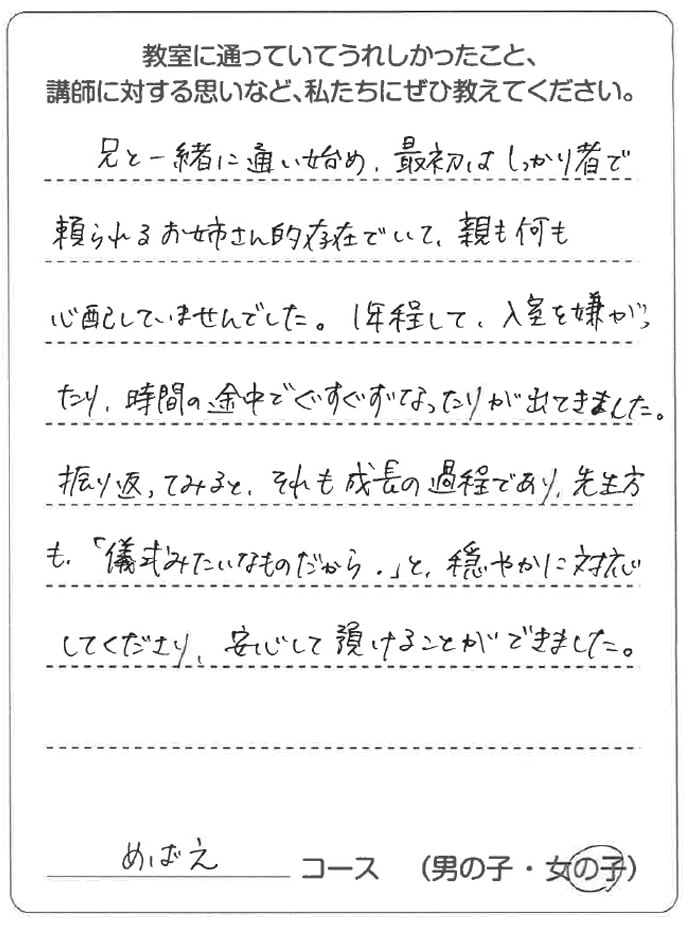 教室に通っていてうれしかったこと、
講師に対する思いなど、私たちにぜひ教えてください。
兄と一緒に通い始め、最初はしっかり者で
頼られるお姉さん的存在でいて、親も何も
心配していませんでした。1年程して、入室を嫌がっ
たり、時間の途中でぐずぐずなったりが出てきました。
振り返ってみると、それも成長の過程であり、先生方
も、「儀式みたいなものだから.」と、穏やかに対応
してくださり、安心して預けることができました。
めばえ コース (男の子・女の子)